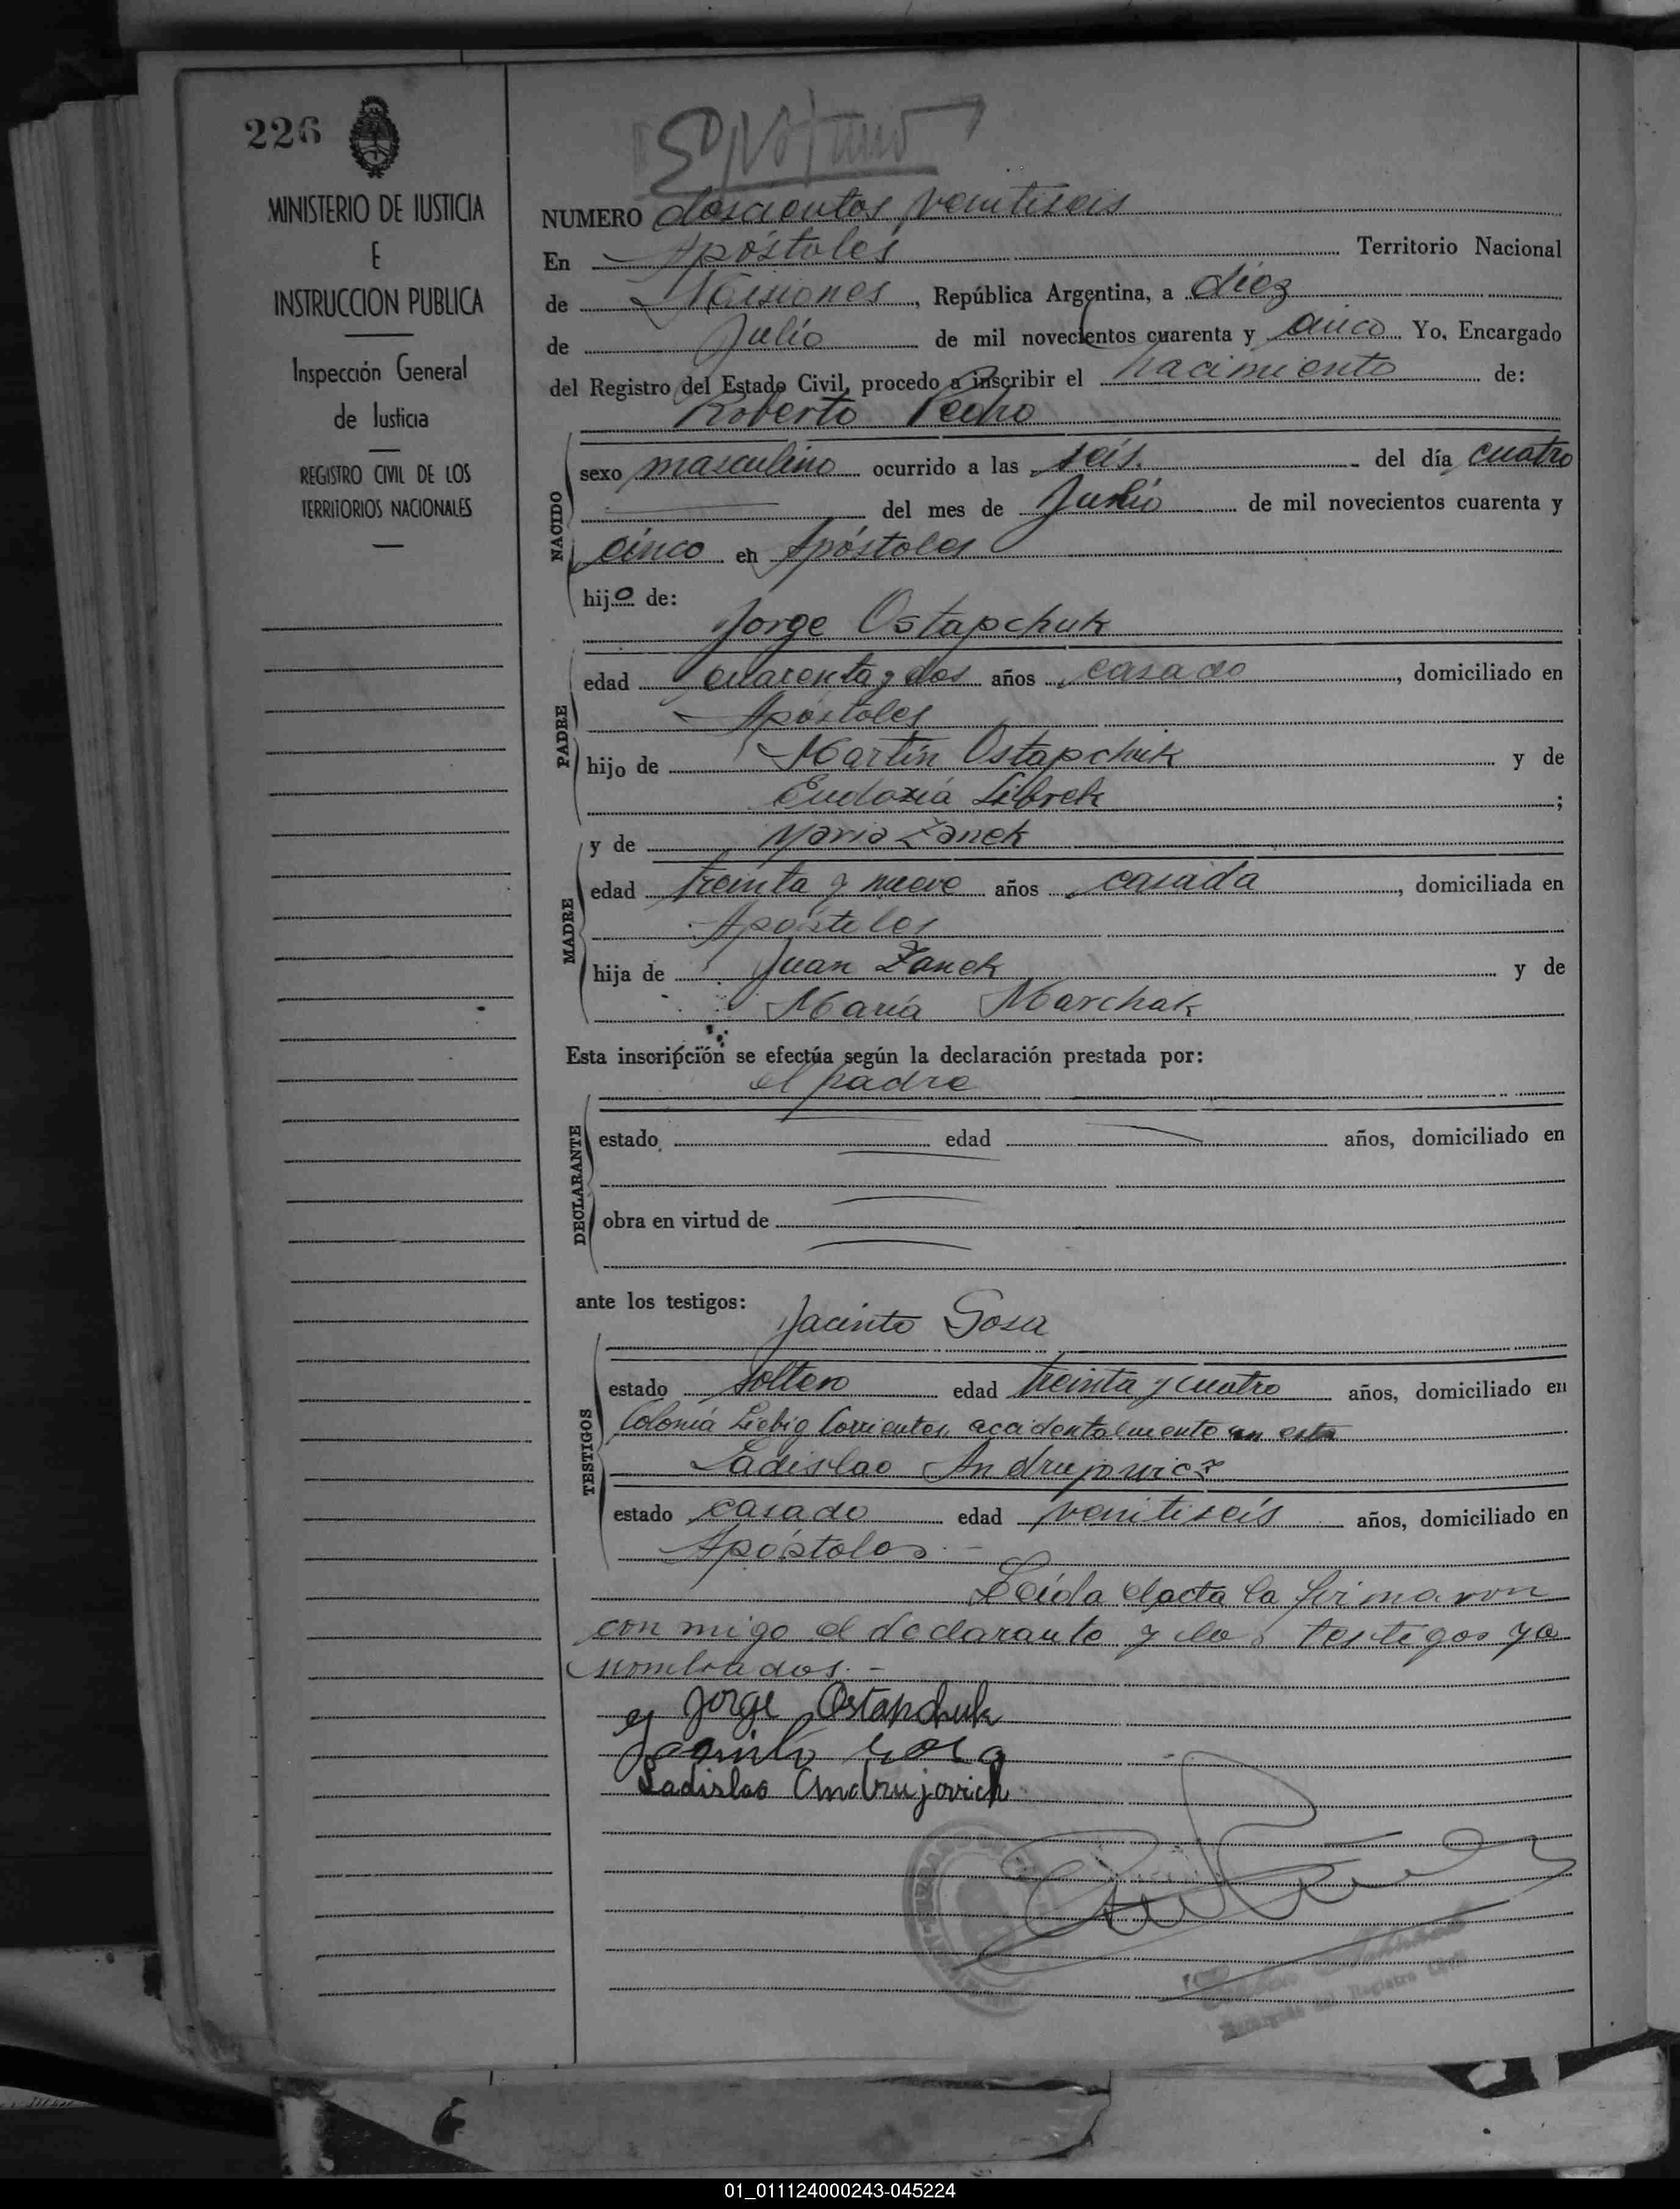 226
MINISTERIO DE JUSTICIA
E
INSTRUCCION PUBLICA
Inspección General
de Justicia
REGISTRO CIVIL DE LOS
TERRITORIOS NACIONALES
NUMERO doscientos veintiseis
En Apóstoles Territorio Nacional
de Misiones, República Argentina, a diez
de Julio de mil novecientos cuarenta y cinco Yo, Encargado
del Registro del Estado Civil, procedo a inscribir el nacimiento de:
Roberto Pedro
NACIDO
sexo masculino ocurrido a las seis. del día cuatro
del mes de Julio de mil novecientos cuarenta y
cinco en Apóstoles
hijo de:
Jorge Ostapchuk
PADRE
edad cuarenta y dos años casado, domiciliado en
Apóstoles
hijo de Martín Ostapchuk y de
Eudoxia ;
y de Maria Zanek
MADRE
edad treinta y nueve años casada, domiciliada en
Apóstoles
hija de Juan Zanek y de
María Marchak
Esta inscripción se efectúa según la declaración prestada por:
el padre
DECLARANTE
estado edad años, domiciliado en
obra en virtud de
ante los testigos:
Jacinto Sosa
TESTIGOS
estado soltero edad treinta y cuatro años, domiciliado en
Colonia Liebig Corrientes, accidentalmente en esta
Ladislao Andrujowicz
estado casado edad veintiseis años, domiciliado en
Apóstoles.-
Leída el acta la firmaron
con migo el declarante y los testigos ya
nombrados.-
Jorge Ostapchuk
Jacinto Sosa
Ladislao Andrujovich
01_011124000243-045224